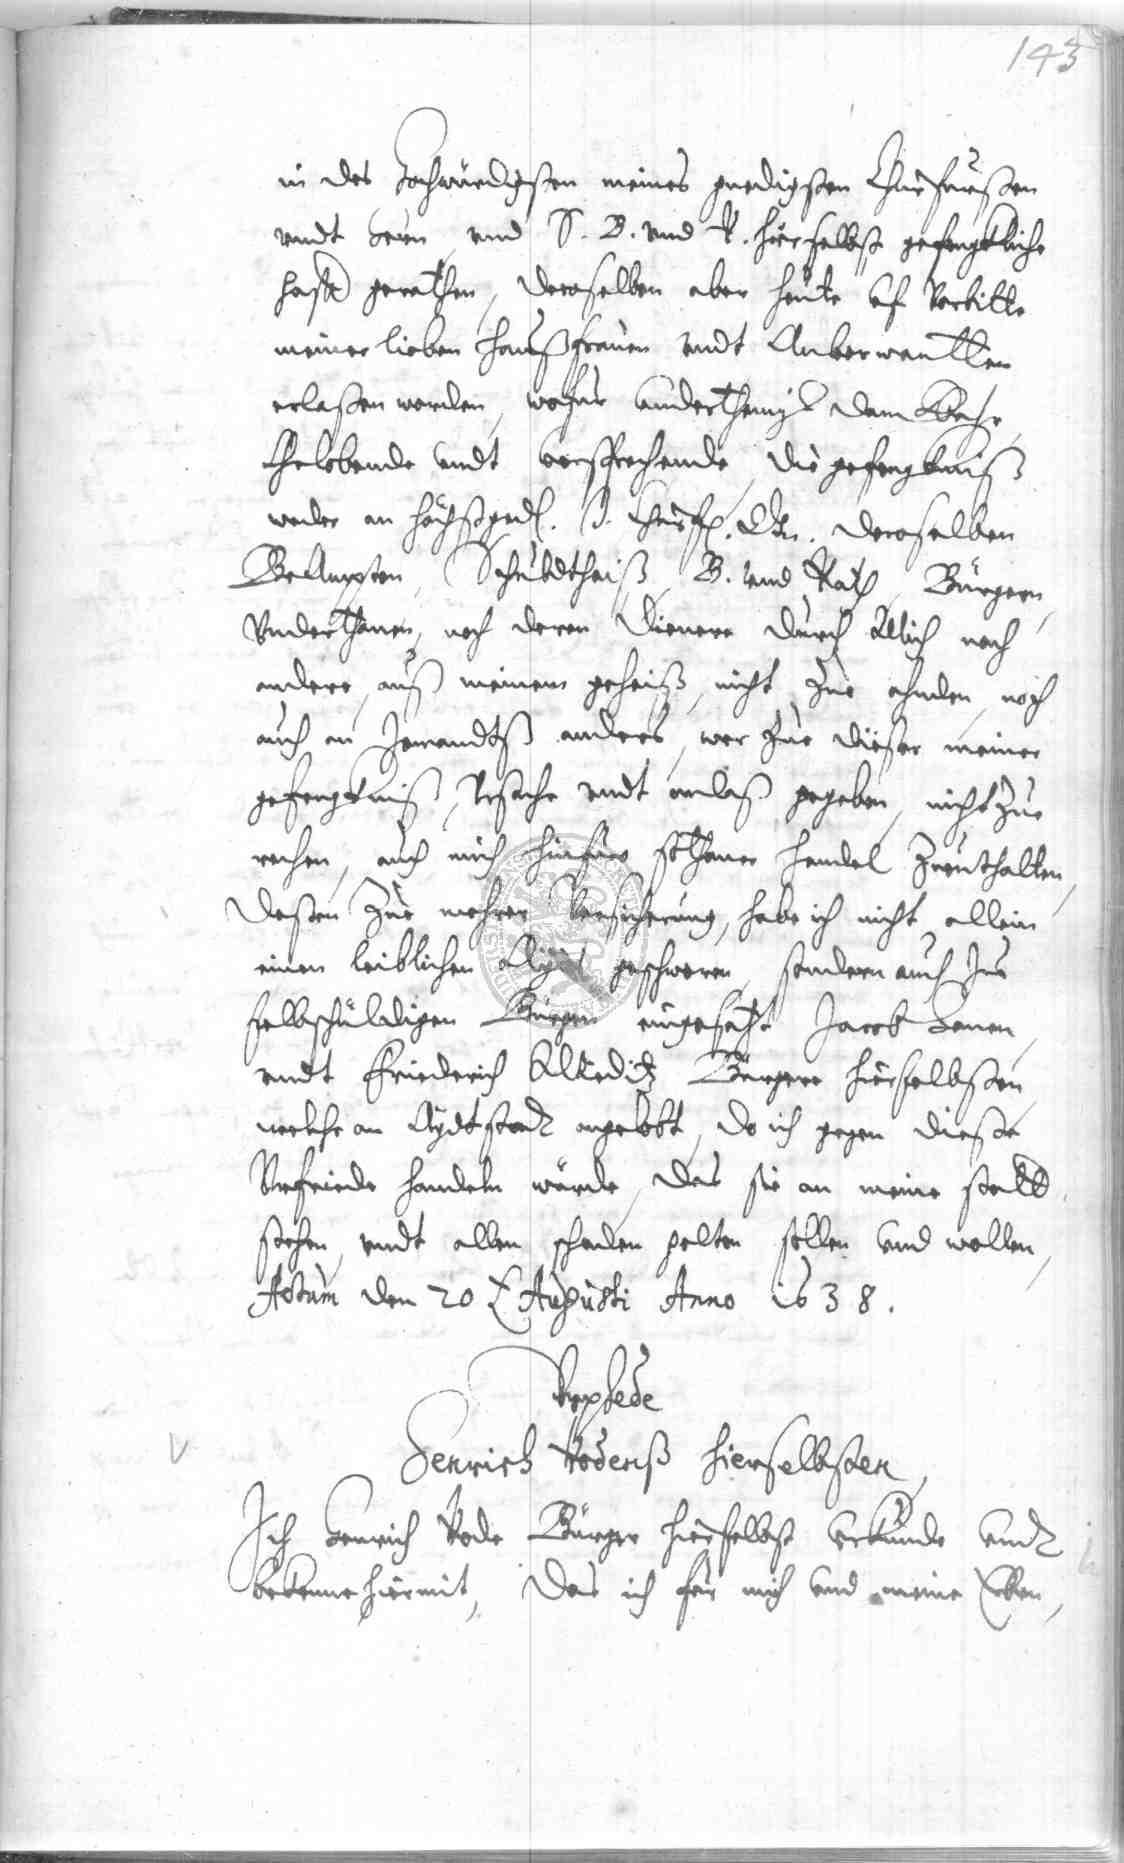 143
in des Hochwürdigsten meines gnedigsten Churfürsten
undt Herrn und S. B. und R. hierselbst gefengkliche
hafft gerathen, deroselben aber heute uf Vorbitte
meiner lieben Haußfrauen undt Anverwantten
erlaßen worden, wofür underthenigst
Gelobende undt versprechende die gefengknuß
weder an höchstged. I. Churf. D. deroselben
Beampten, Schuldtheiß, B. und Rath, Bürgern,
Underthanen, noch deren Dienere durch Mich noch
andere, auß meinem geheiß, nicht Zue ahnden, noch
auch an Jemandtß anders, wer Zue dieser meiner
gefengknuß, Ursache undt anlaß gegeben, nicht Zue
rechen, auch mich hinfuro solcher handel Zuenthalten,
Deßen Zue mehrer Versicherung, habe ich nicht allein
einen leiblichen Aydt geschworen, sondern auch Zue
selbschüldigen Bürgen eingesatzt Jacob
undt Friederich Bürgere hierselbsten,
welche an Aydtstadt angelobt, do ich gegen dieße
Uhrfriede handeln würde, das sie an meine stadt
stehen, undt allen schaden gelten sollen und wollen,
Actum den 20 t. Augusti Anno 1638.
Urphede
Henrich Rodenß hierselbsten,
Ich Henrich Rode Bürger hierselbst urkunde undt
bekenne hiermit, Das ich für mich und meine Erben,